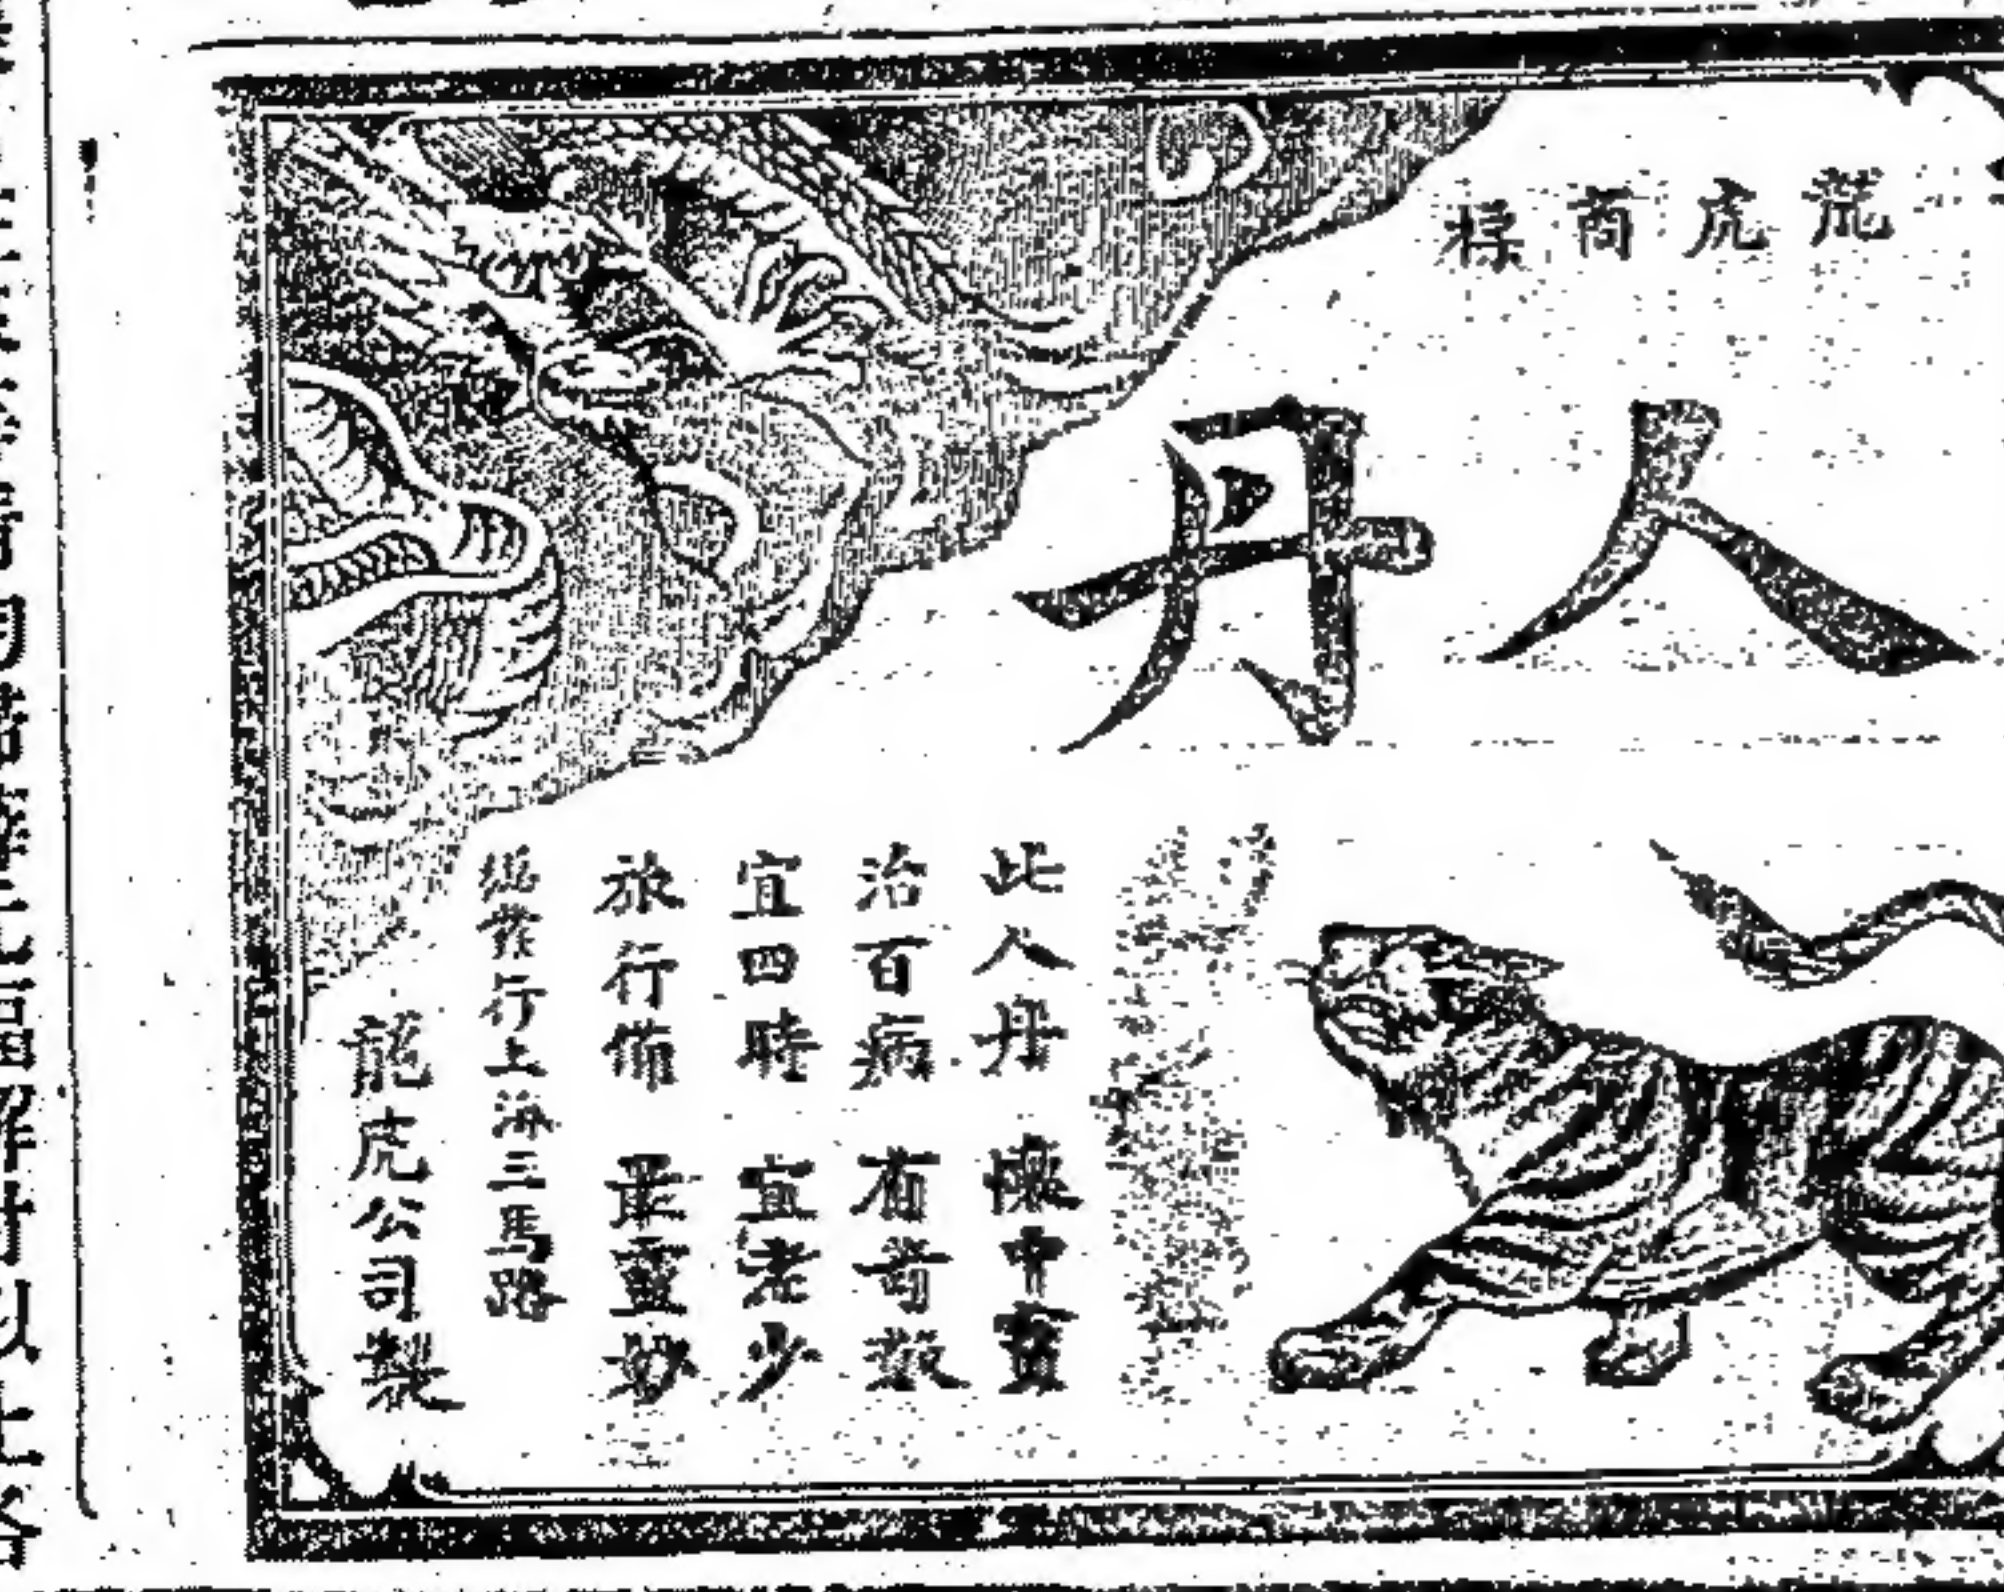 龍虎商標
人丹
此人丹 懷中寶
治百病 有奇效
宜四時 宜老少
旅行備 最靈妙
總發行上海三馬路
龍虎公司製